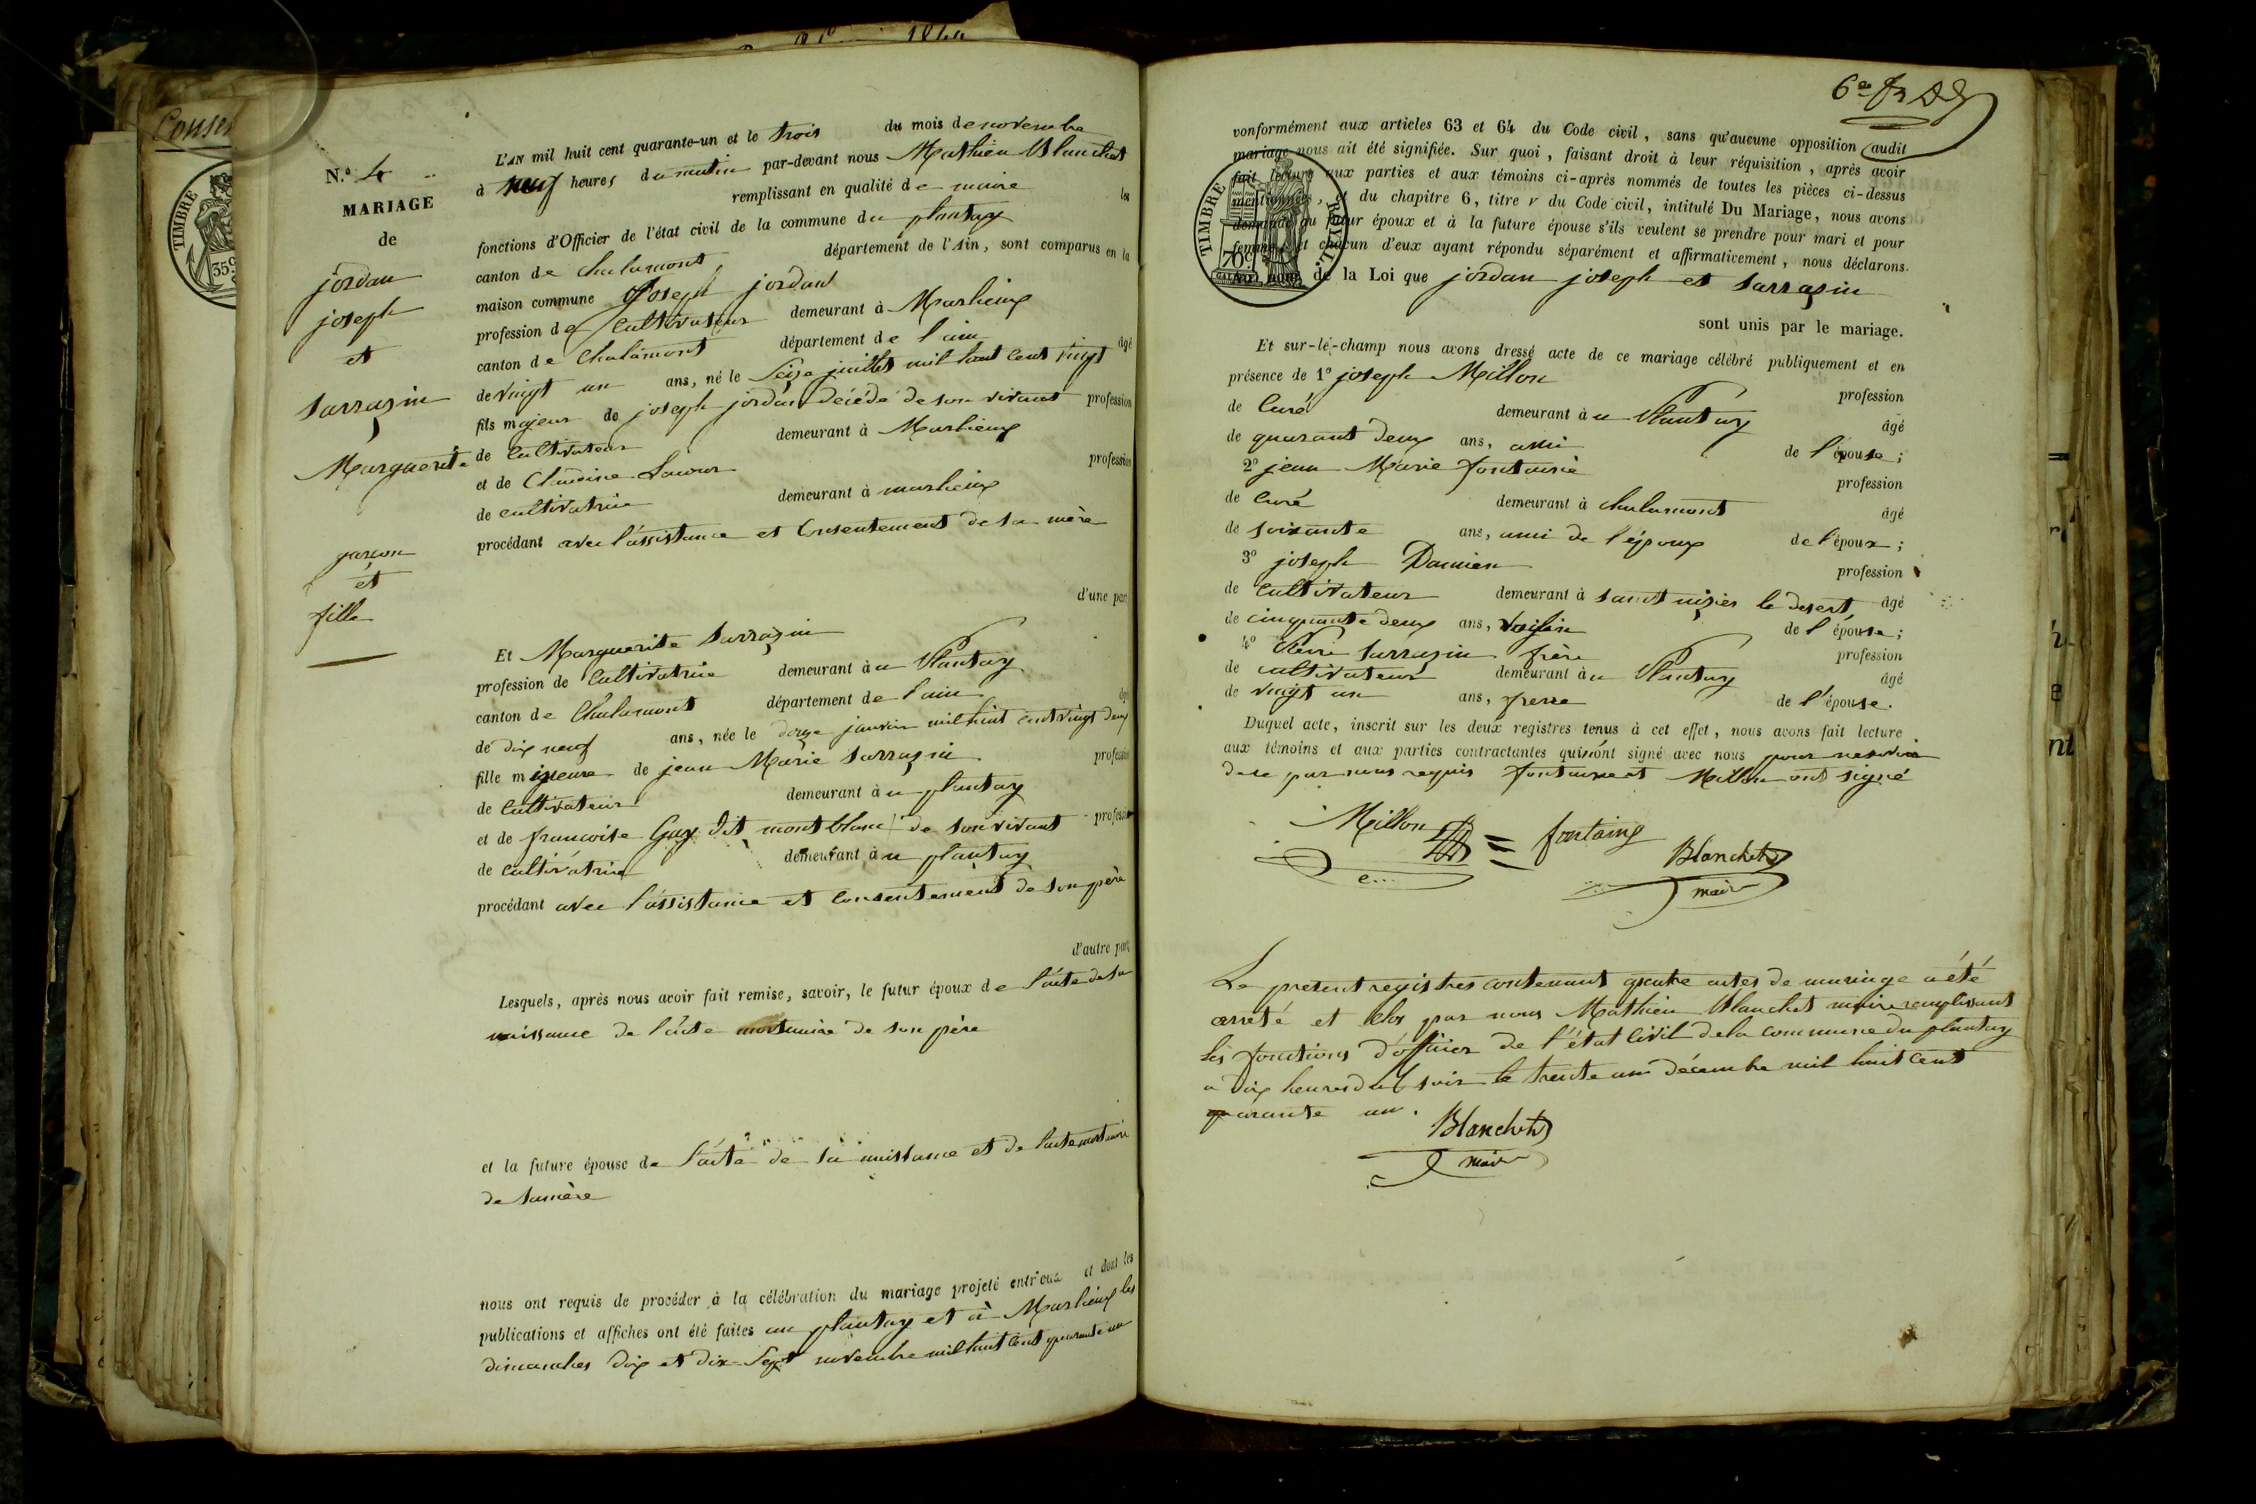 1840
Conse
TIMBRE
35c
N.º 4
MARIAGE
de
jordan
joseph
et
Sarrazin
Marguerite
garçon
et
fille
L'AN mil huit cent quarante-un et le trois du mois de novembre
à neuf heures du matin par-devant nous Mathieu Blanchet
remplissant en qualité de maire les
fonctions d'Officier de l'état civil de la commune du plantay
canton de Chalamont, département de l'Ain, sont comparus en la
maison commune Joseph jordan
profession de Cultivateur demeurant à Marlieux
canton de Chalamont département de l'ain âgé
de vingt un ans, né le Seize juillet mil huit cent vingt
fils majeur de joseph jordan décédé de son vivant profession
de Cultivateur demeurant à Marlieux
et de Claudine profession
de cultivatrice demeurant à marlieux
procédant avec l'assistance et Consentement de sa mère
d'une part
Et Marguerite Sarrazin
profession de Cultivatrice demeurant à u Plantay
canton de Chalamont département de l'ain âgé
de dix neuf ans, née le douze janvier mil huit cent vingt deux
fille mineure de jean Marie Sarrazin profession
de Cultivateur demeurant à u plantay
et de francoise Guy dit mont blanc de son vivant profession
de Cultivatrice demeurant à u plantay
procédant avec l'assistance et Consentement de son père
d'autre part
Lesquels, après nous avoir fait remise, savoir, le futur époux de l'acte de sa
naissance de l'acte mortuaire de son père
et la future épouse de l'acte de sa naissance et de l'acte mortuaire
de sa mère
nous ont requis de procéder à la célébration du mariage projeté entr'eux et dont les
publications et affiches ont été faites au plantay et à Marlieux les
dimanches dix et dix-Sept novembre mil huit cent quarante un
6e
conformément aux articles 63 et 64 du Code civil, sans qu'aucune opposition audit
mariage nous ait été signifiée. Sur quoi, faisant droit à leur réquisition, après avoir
fait lecture aux parties et aux témoins ci-après nommés de toutes les pièces ci-dessus
mentionnées, et du chapitre 6, titre v du Code civil, intitulé Du Mariage, nous avons
demandé au futur époux et à la future épouse s'ils veulent se prendre pour mari et pour
femme, et chacun d'eux ayant répondu séparément et affirmativement, nous déclarons.
au nom de la Loi que jordan joseph et Sarrazin
TIMBRE ROYAL
70c
sont unis par le mariage.
Et sur-le-champ nous avons dressé acte de ce mariage célébré publiquement et en
présence de 1º joseph Millon
profession
de Curé demeurant à u Plantay âgé
de quarant deux ans, ami de l'épouse;
2º jean Marie fontaine
profession
de Curé demeurant à chalamont âgé
de soixante ans, ami de l'époux de l'époux;
3º joseph Damien
profession
de Cultivateur demeurant à saint nizier le desert âgé
de cinquante deux ans, voisin de l'épouse;
4º Pierre Sarrazin frère
profession
de cultivateur demeurant à u Plantay âgé
de vingt un ans, frere de l'épouse.
Duquel acte, inscrit sur les deux registres tenus à cet effet, nous avons fait lecture
aux témoins et aux parties contractantes qui n'ont signé avec nous pour ne savoir
de ce par nous requis fontaine et Millon ont signé
Millon
fontaine
Blanchet
maire
Le present registres contenant quatre actes de mariage a été
arreté et clos par nous Mathieu Blanchet maire remplissant
les fonctions d'officier de l'état civil de la commune du plantay
a dix heures du soir le trente un décembre mil huit cent
quarante un.
Blanchet
maire